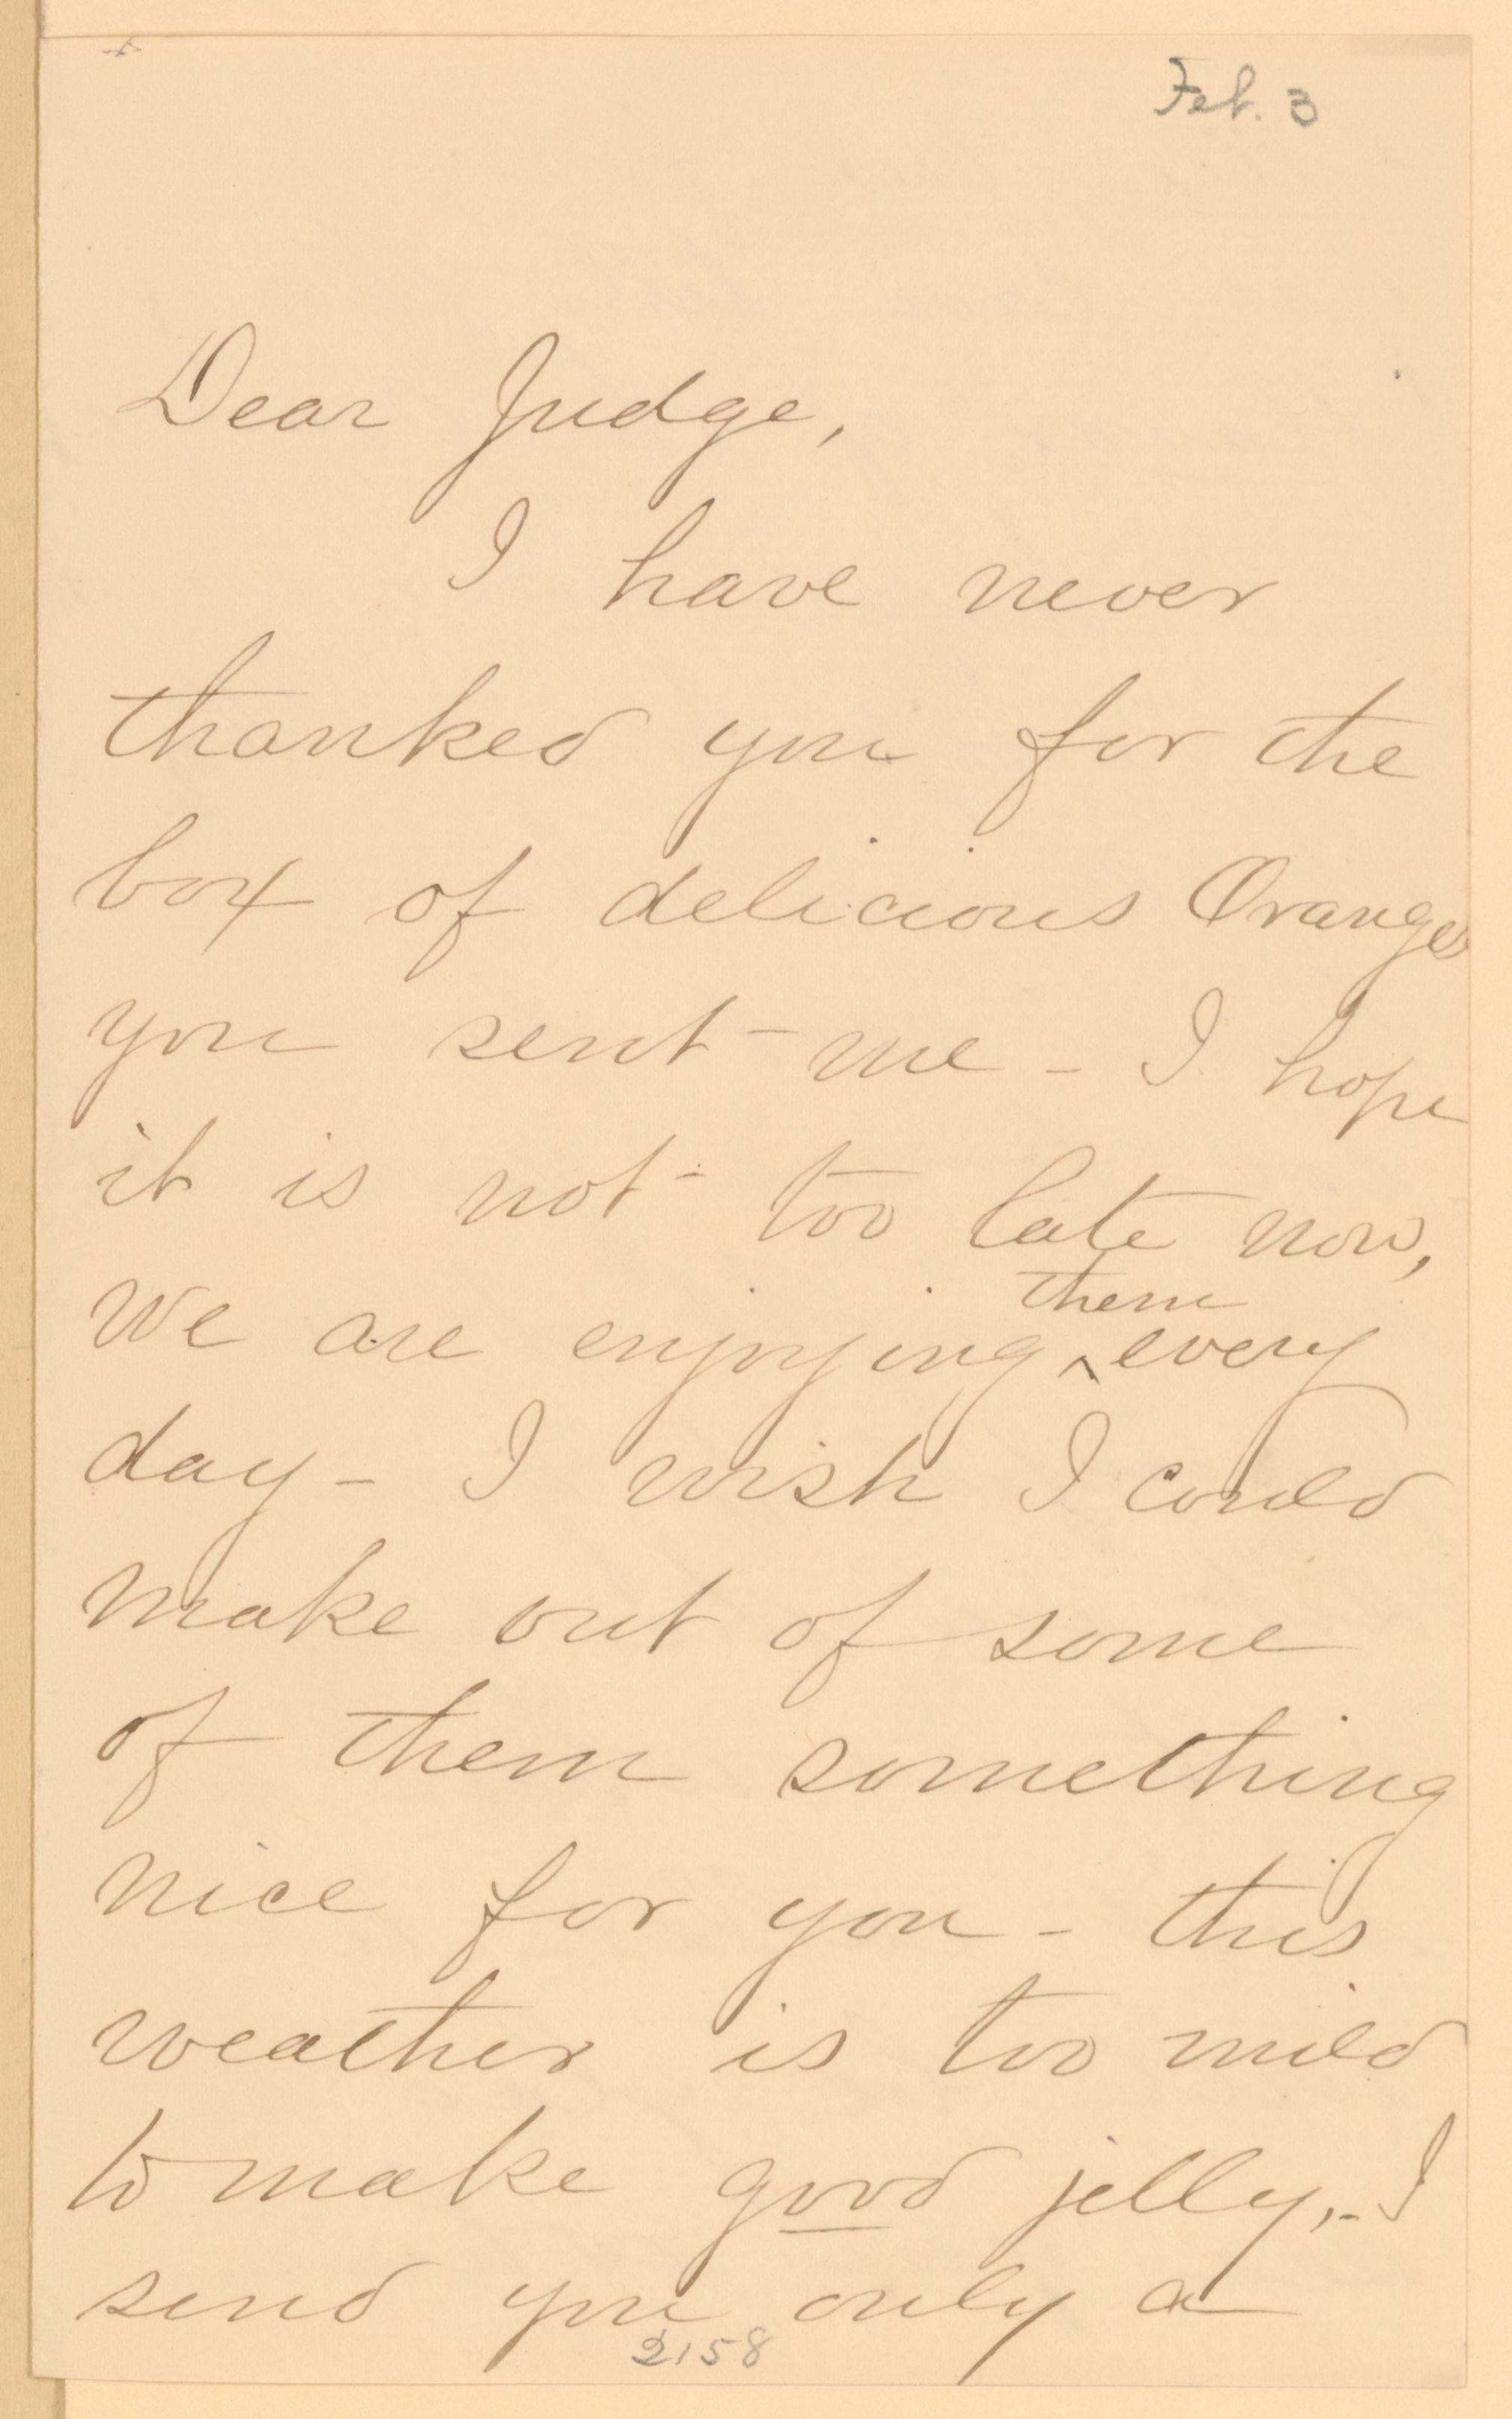 Feb. 3
Dear Judge,
I have never
thanked you for the
box of delicious Oranges
you sent me - I hope
it is not too late now,
We are enjoying ^them every
day - I wish I could
make out of some
of them something
nice for you - this
weather is too mild
to make good jelly, - I
send you only a
2158